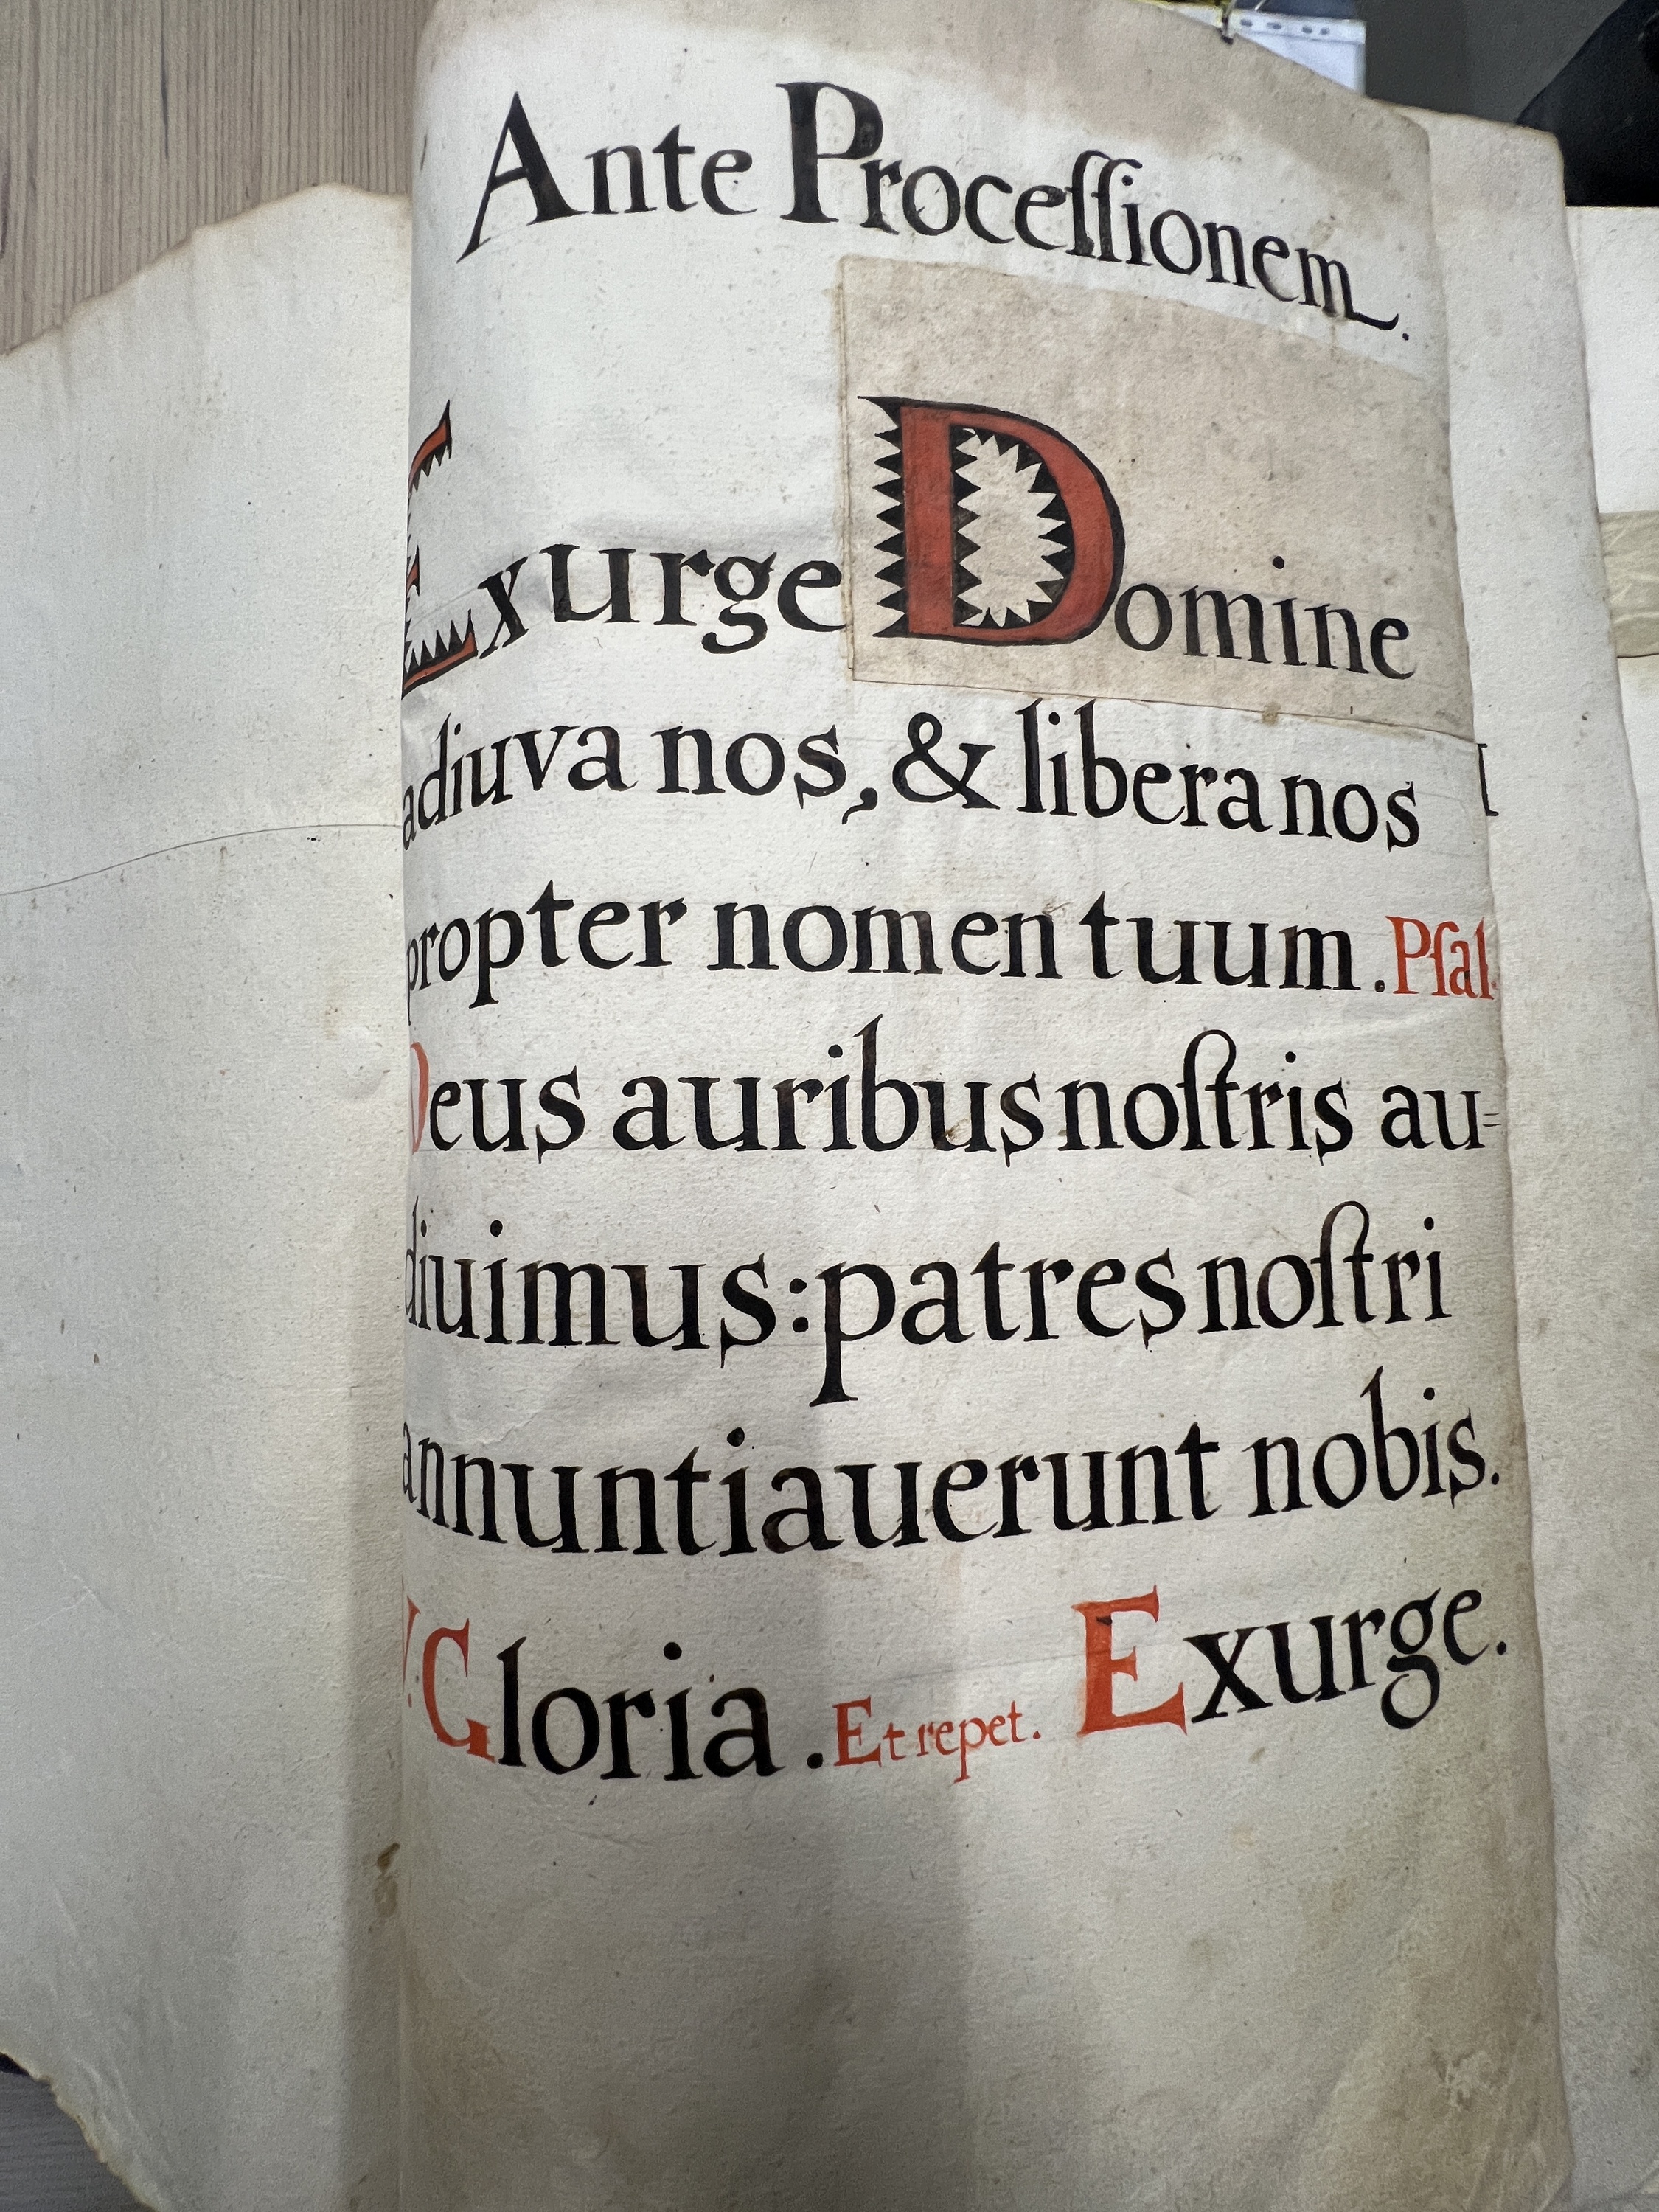 Ante Proceſſionem.
Exurge Domine
adiuva nos, & libera nos
propter nomen tuum. Pſal.
Deus auribus noſtris au=
diuimus: patres noſtri
annuntiauerunt nobis.
V. Gloria. Et repet. Exurge.